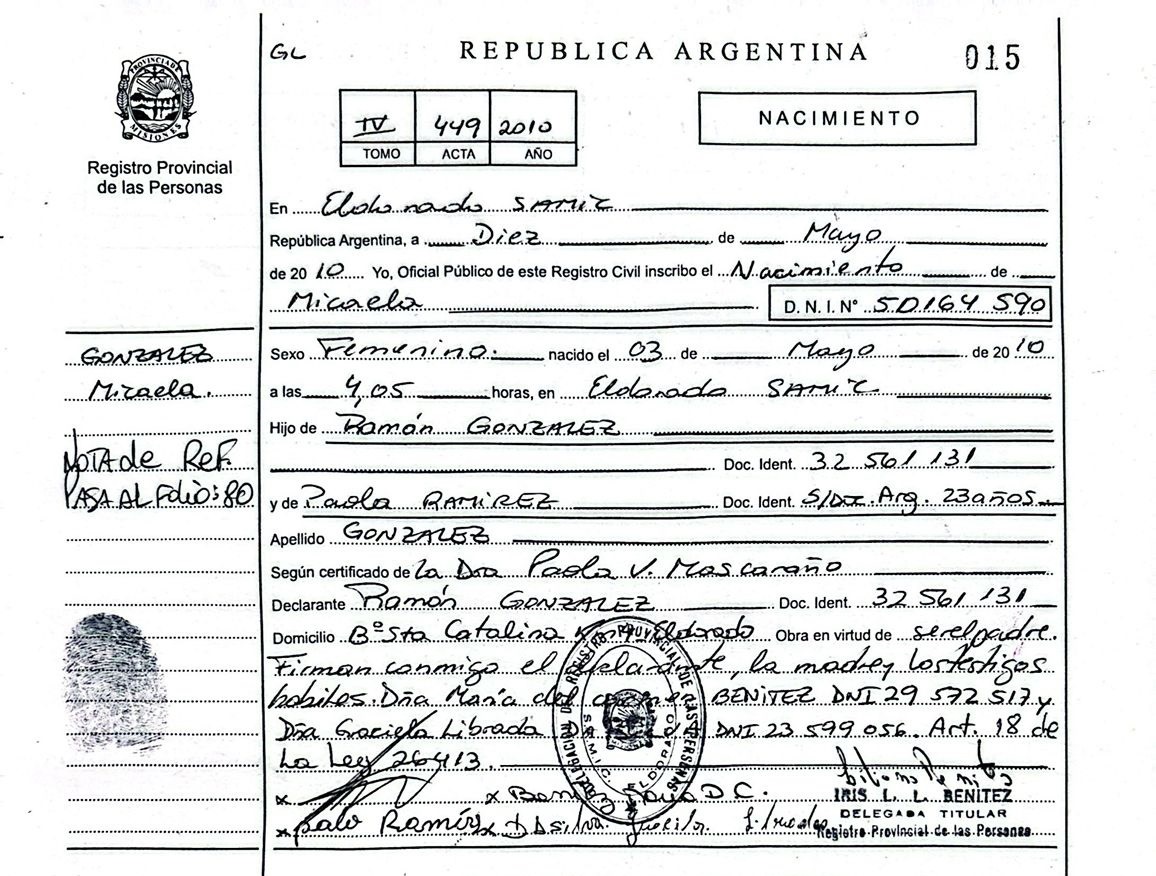 GL
REPUBLICA ARGENTINA
015
PROVINCIA DE MISIONES
Registro Provincial
de las Personas
IV 449 2010
TOMO ACTA AÑO
NACIMIENTO
En Eldorado SAMIC
República Argentina, a Diez de Mayo
de 2010 Yo, Oficial Público de este Registro Civil inscribo el Nacimiento de
Micaela D. N. I. Nº 50164 590
GONZALEZ
Micaela.
NOTA de Ref.
PASA AL Folio: 80
Sexo Femenino. nacido el 03 de Mayo de 2010
a las 4,05 horas, en Eldorado SAMIC
Hijo de Ramón GONZALEZ
Doc. Ident. 32 561 131
y de Paola RAMIREZ Doc. Ident. S/Doc. Arg. 23 años.
Apellido GONZALEZ
Según certificado de La Dra Paola V. Moscaraño
Declarante Ramón GONZALEZ Doc. Ident. 32 561 131
Domicilio Bº Sta Catalina Eldorado Obra en virtud de ser el padre.
Firman conmigo el declarante, la madre y los testigos
habiles. Dña María del BENITEZ DNI 29 572 517 y
Dña Graciela Librada DNI 23 599 056. Art. 18 de
La Ley 26413.
DELEGACION DEL REGISTRO PROVINCIAL DE LAS PERSONAS
S.A.M.I.C. ELDORADO
x x D C.
x Ramirez x
IRIS L. L. BENITEZ
DELEGADA TITULAR
Registro Provincial de las Personas